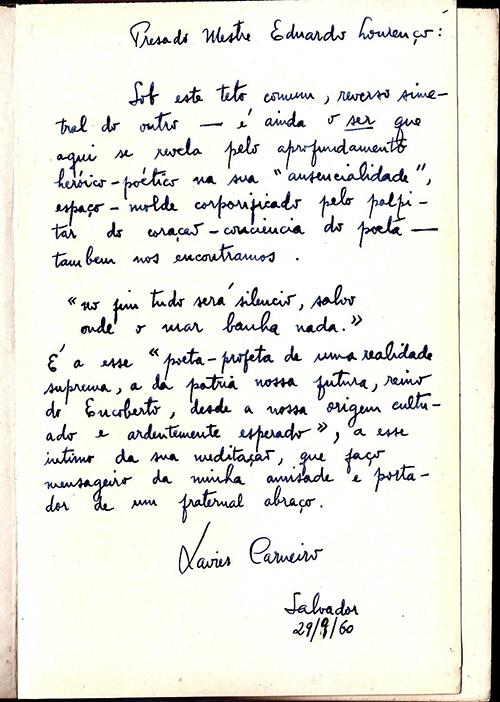 Presado Mestre Eduardo Lourenço:
Sob este teto comum, reverso sime-
tral do outro — é ainda o ser que
aqui se revela pelo aprofundamento
heróico-poético na sua "ausencialidade",
espaço-molde corporificado pelo palpi-
tar do coração-consciência do poeta —
tambem nos encontramos.
"no fim tudo será silencio, salvo
onde o mar banha nada."
É a esse "poeta-profeta de uma realidade
suprema, a da patria nossa futura, reino
do Encoberto, desde a nossa origem cultu-
ado e ardentemente esperado", a esse
intimo da sua meditação, que faço
mensageiro da minha amisade e porta-
dor de um fraternal abraço.
Xavier Carneiro
Salvador
29/9/60